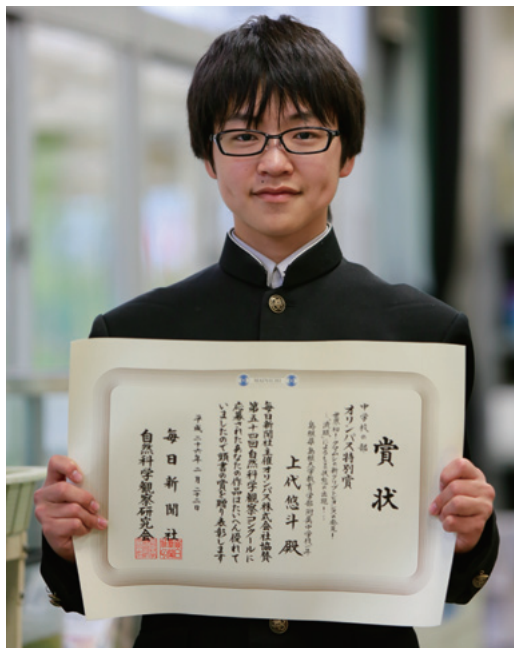 賞状
中学校の部
オリンパス特別賞
島根県 島根大学教育学部附属中学校一年
上代悠斗 殿
毎日新聞社主催オリンパス株式会社協賛
第五十四回自然科学観察コンクールに
応募されたあなたの作品はたいへん優れて
いましたので頭書の賞を贈り表彰します
平成二十六年二月二十二日
毎日新聞社
自然科学観察研究会